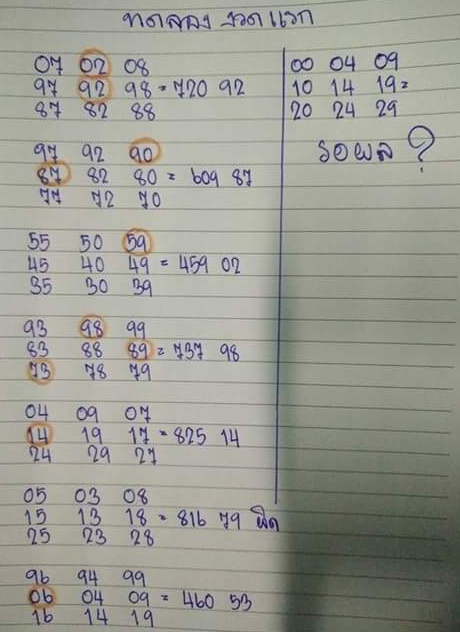 ทดลอง งวดแรก
07 02 08
97 92 98 = 720 92
87 82 88
97 92 90
87 82 80 = 609 87
77 72 70
55 50 59
45 40 49 = 459 02
35 30 39
93 98 99
83 88 89 = 737 98
73 78 79
04 09 07
14 19 17 = 825 14
24 29 27
05 03 08
15 13 18 = 816 79 ผิด
25 23 28
96 94 99
06 04 09 = 460 53
16 14 19
00 04 09
10 14 19 =
20 24 29
รอผล ?